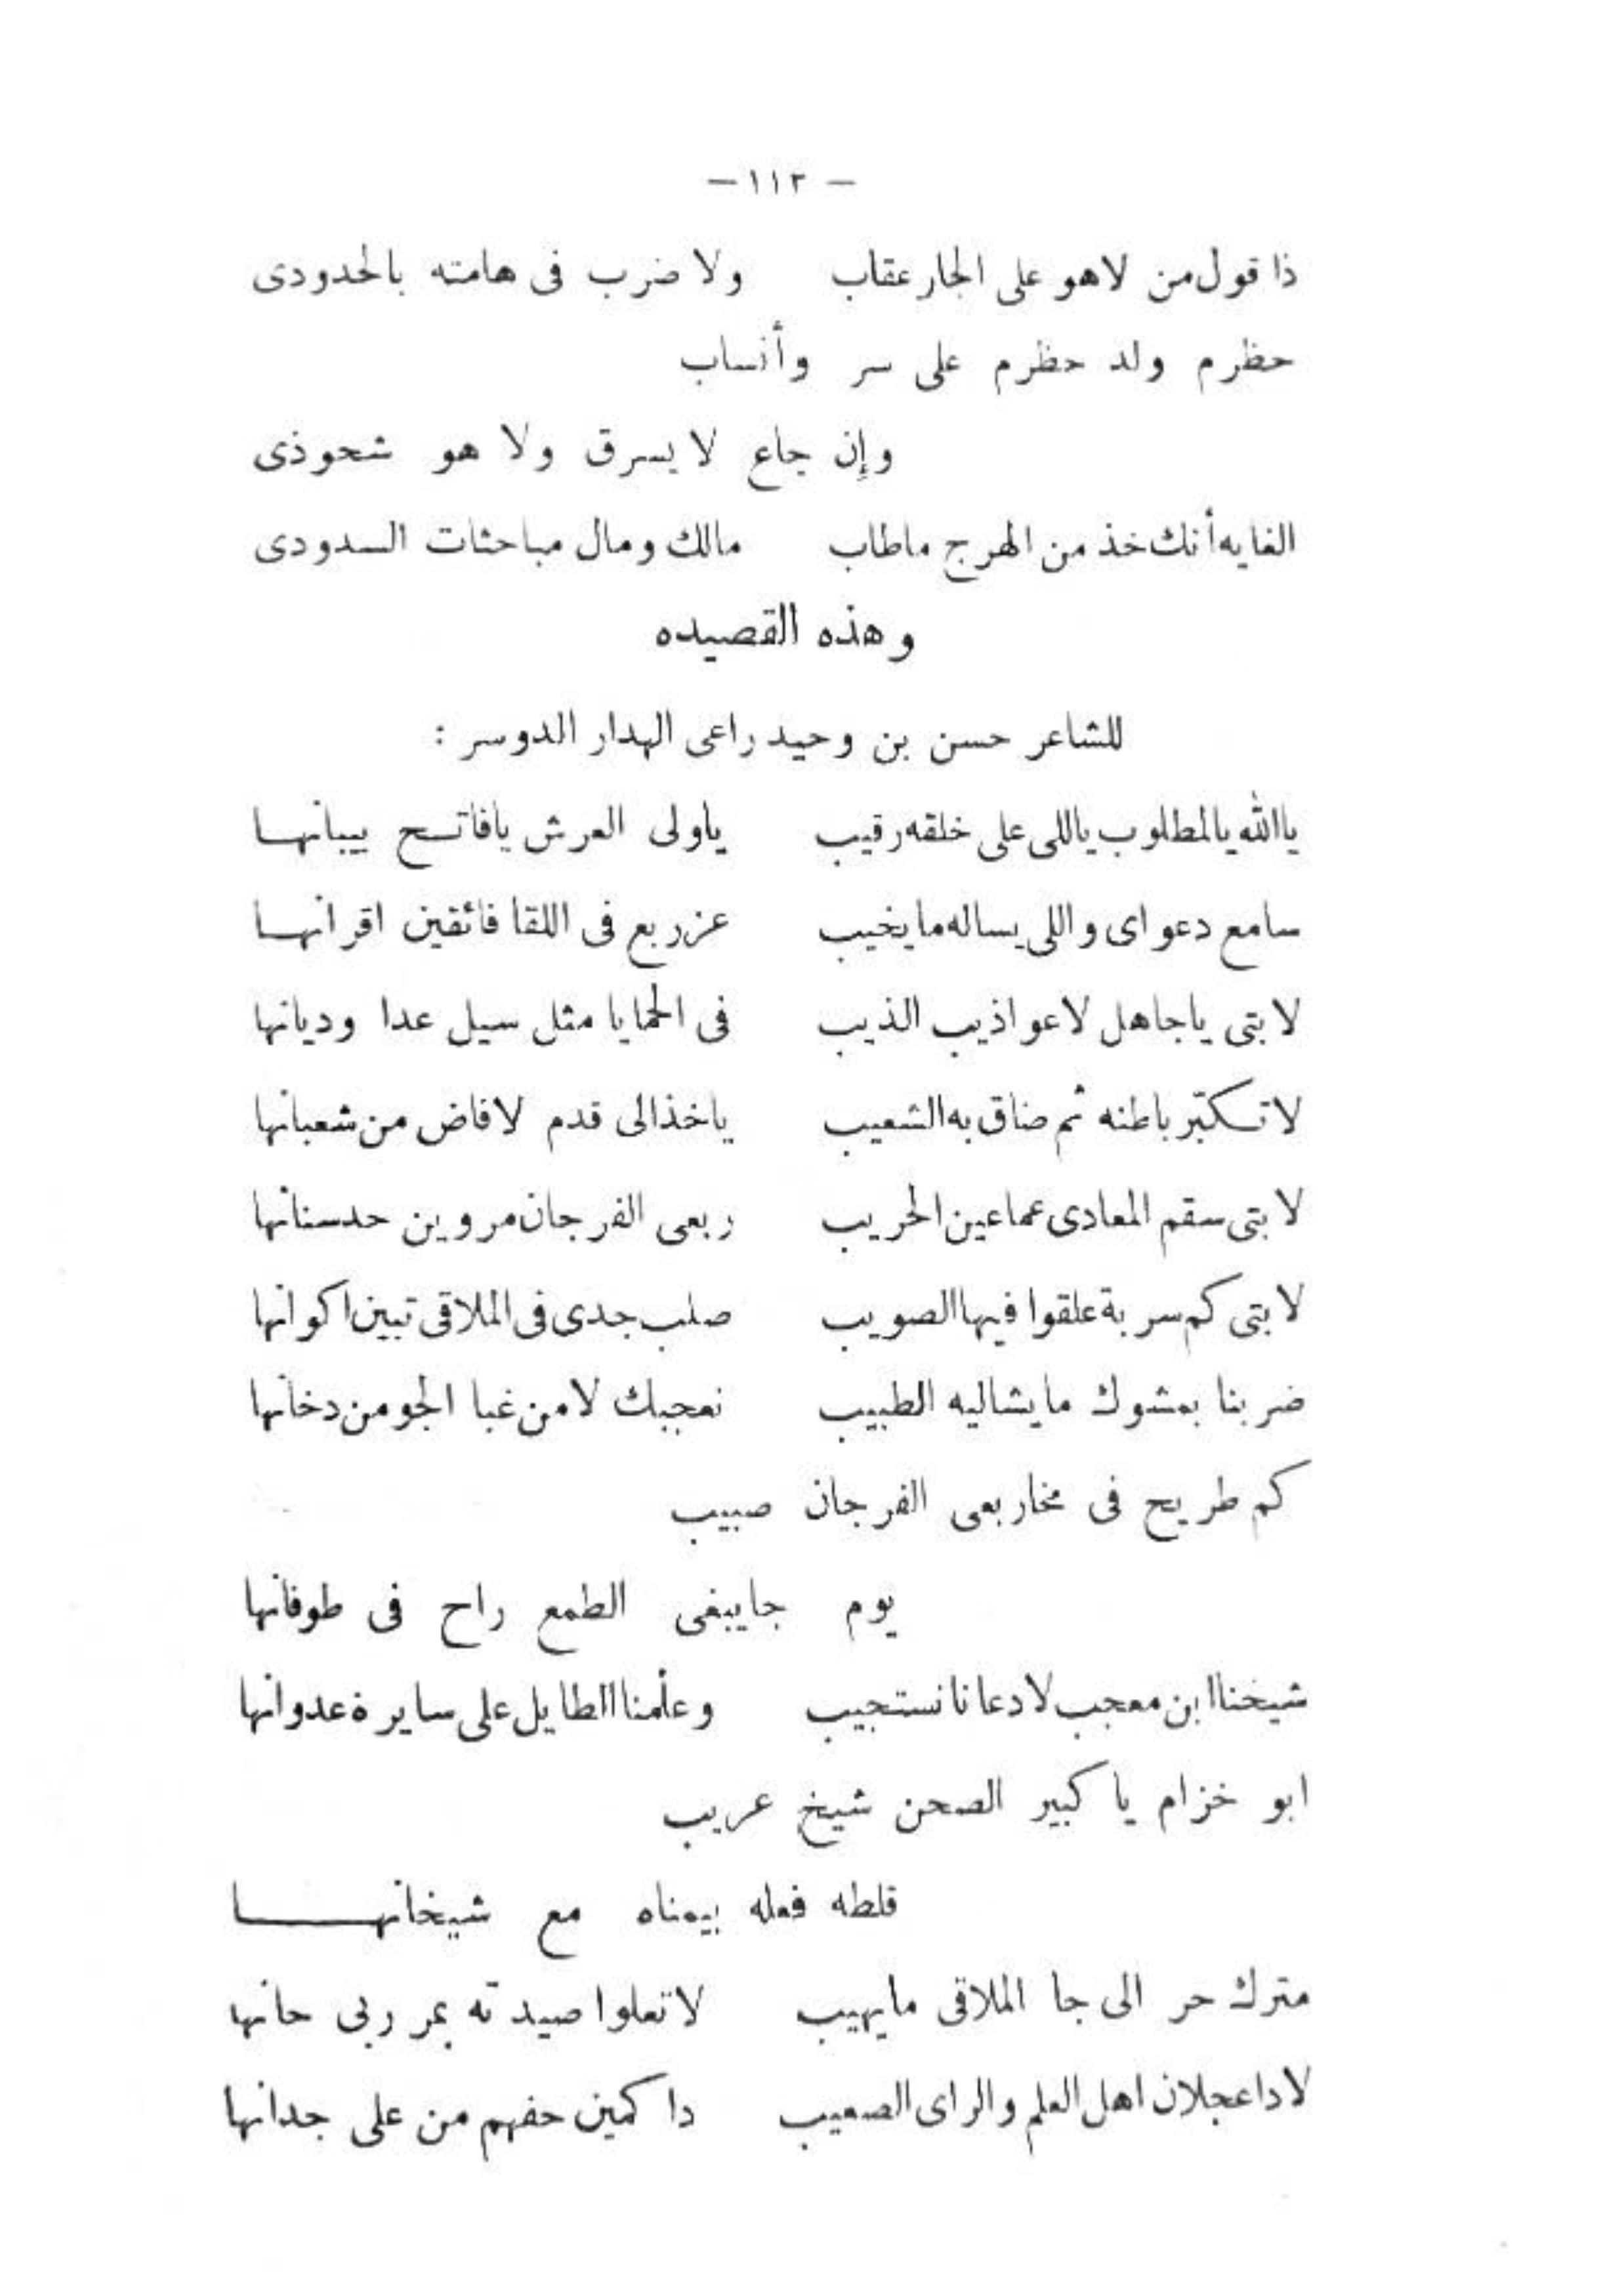 — ١١٢ —
ذا قول من لاهو على الجار عقاب ولا ضرب فى هامته بالحدودى
حظرم ولد حظرم على سر وأنساب
وإن جاع لا يسرق ولا هو شحوذى
الغايه أنك خذ من الهرج ماطاب مالك ومال مباحثات السدودى
وهذه القصيده
للشاعر حسن بن وحيد راعى الهدار الدوسر :
ياالله يالمطلوب ياللى على خلقه رقيب ياولى العرش يافاتح بيبانها
سامع دعواى واللى يساله ما يخيب عز ربع فى اللقا فائقين اقرانها
لابتى ياجاهل لاعواذيب الذيب فى الحمايا مثل سيل عدا وديانها
لا تسكتر باطنه ثم ضاق به الشعيب ياخذ الى قدم لافاض من شعبانها
لابتى سقم المعادى عماعين الحريب ربعى الفرجان مروين حدسنانها
لابتى كم سربة علقوا فيها الصويب صلب جدى فى الملاقى تبين اكوانها
ضربنا بمشوك مايشاليه الطبيب نعجبك لامن غبا الجو من دخانها
كم طريح فى نحار بعى الفرجان صبيب
يوم جايبغى الطمع راح فى طوفانها
شيخنا ابن معجب لا دعانا نستجيب وعلمنا الطايل على سايرة عدوانها
ابو خزام يا كبير الصحن شيخ عريب
قلطه فعله بيمناه مع شيخانها
مترك حر الى جا الملاقى مايهيب لاتعلوا صيدته بمر ربى حانها
لاداعجلان اهل العلم والراى الصعيب دا كمين حفهم من على جدانها